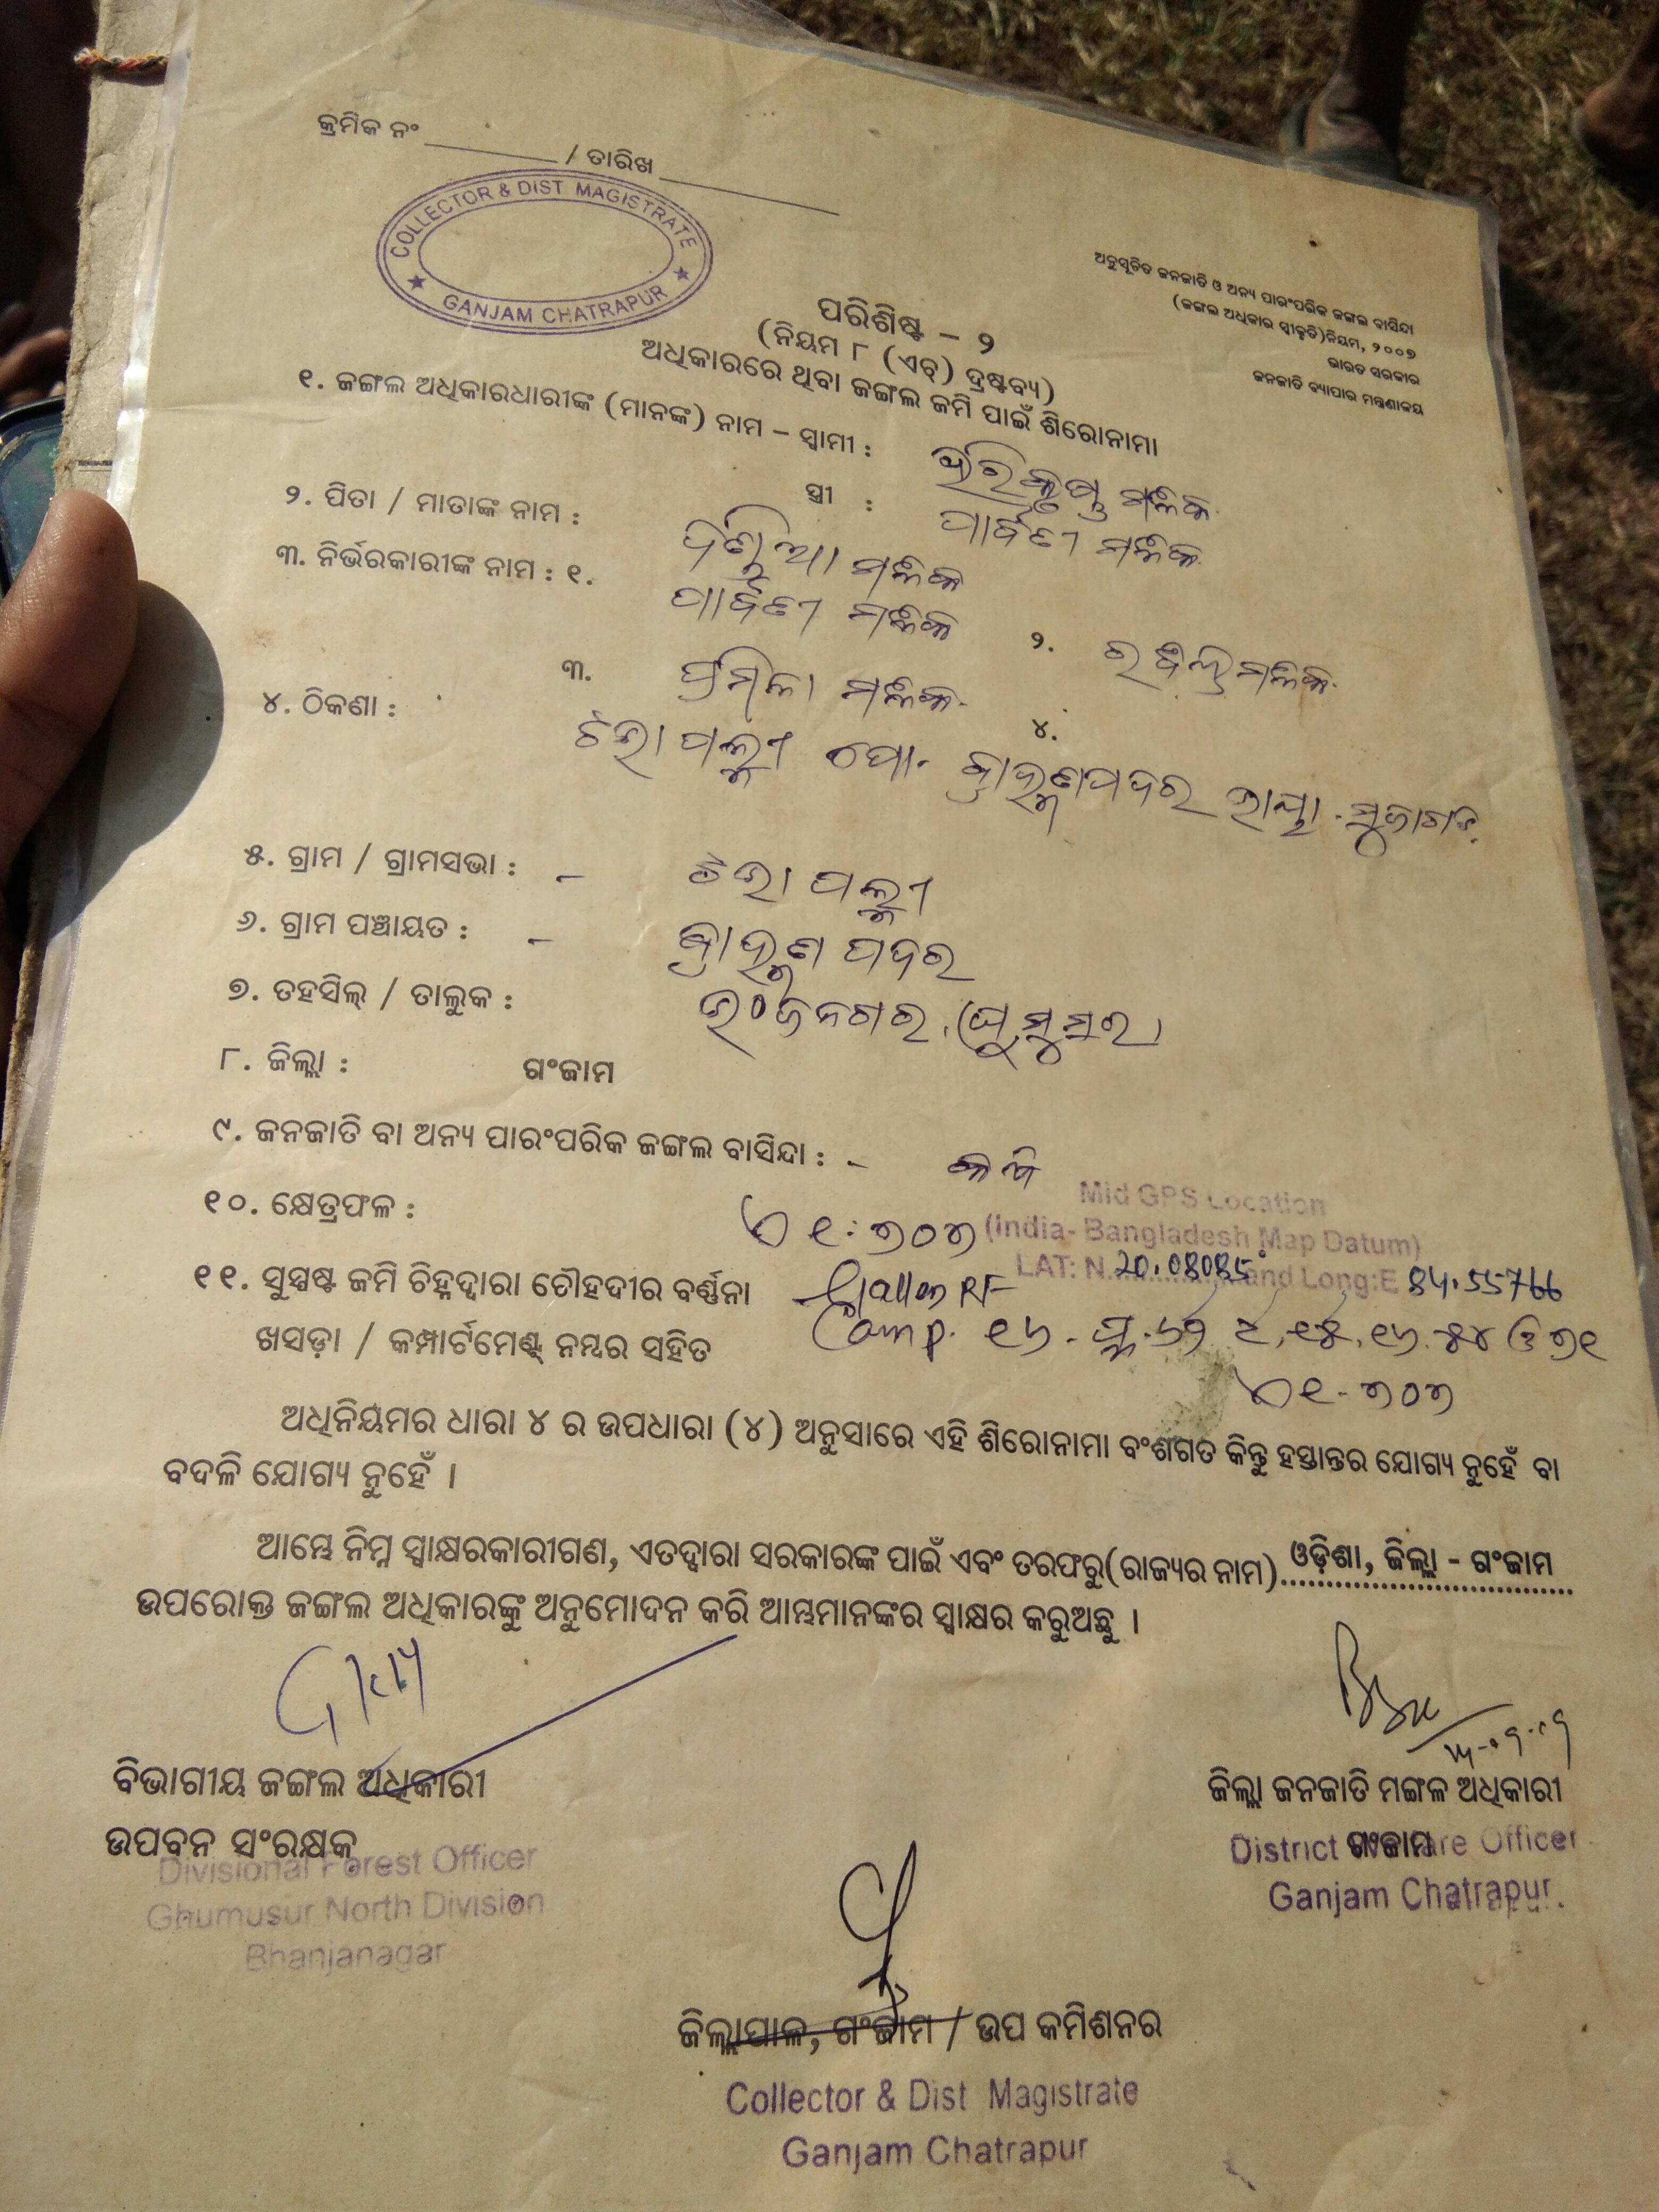 କ୍ରମିକ ନଂ __________ / ତାରିଖ __________
COLLECTOR & DIST MAGISTRATE
GANJAM CHATRAPUR
ଅନୁସୂଚିତ ଜନଜାତି ଓ ଅନ୍ୟ ପାରଂପରିକ ଜଙ୍ଗଲ ବାସିନ୍ଦା
(ଜଙ୍ଗଲ ଅଧିକାର ସ୍ୱୀକୃତି)ନିୟମ, ୨୦୦୭
ଭାରତ ସରକାର
ଜନଜାତି ବ୍ୟାପାର ମନ୍ତ୍ରଣାଳୟ
ପରିଶିଷ୍ଟ – ୨
(ନିୟମ ୮ (ଏଚ୍) ଦ୍ରଷ୍ଟବ୍ୟ)
ଅଧିକାରରେ ଥିବା ଜଙ୍ଗଲ ଜମି ପାଇଁ ଶିରୋନାମା
୧. ଜଙ୍ଗଲ ଅଧିକାରଧାରୀଙ୍କ (ମାନଙ୍କ) ନାମ – ସ୍ୱାମୀ : ହରିକୃଷ୍ଣ ମଲ୍ଲିକ
ସ୍ତ୍ରୀ : ପାର୍ବତୀ ମଲ୍ଲିକ
୨. ପିତା / ମାତାଙ୍କ ନାମ : ମଲ୍ଲିକ
୩. ନିର୍ଭରକାରୀଙ୍କ ନାମ : ୧. ପାର୍ବତୀ ମଲ୍ଲିକ
୨. ରବିନ୍ଦ୍ର ମଲ୍ଲିକ
୩. ପ୍ରମିଳା ମଲ୍ଲିକ
୪.
୪. ଠିକଣା : ପଲ୍ଲୀ ପୋ. ବ୍ରାହ୍ମଣପଦର ଭାୟା. ମୁଜାଗଡ଼
୫. ଗ୍ରାମ / ଗ୍ରାମସଭା : – ପଲ୍ଲୀ
୬. ଗ୍ରାମ ପଞ୍ଚାୟତ : – ବ୍ରାହ୍ମଣ ପଦର
୭. ତହସିଲ୍ / ତାଲୁକ : ଭଂଜନଗର, (ଘୁମୁସର)
୮. ଜିଲ୍ଲା : ଗଂଜାମ
୯. ଜନଜାତି ବା ଅନ୍ୟ ପାରଂପରିକ ଜଙ୍ଗଲ ବାସିନ୍ଦା : – କନ୍ଧ
୧୦. କ୍ଷେତ୍ରଫଳ : ଏ ୧.୭୦୭
Mid GPS Location
(India- Bangladesh Map Datum)
LAT: N. 20.08085 and Long:E 84.55766
୧୧. ସୁସ୍ପଷ୍ଟ ଜମି ଚିହ୍ନଦ୍ୱାରା ଚୌହଦୀର ବର୍ଣ୍ଣନା Gallery RF
ଖସଡ଼ା / କମ୍ପାର୍ଟମେଣ୍ଟ୍ ନମ୍ବର ସହିତ Comp. ୧୬ - ୧୫, ୧୬. ୫୪ ଓ ୭୧
ଏ ୧-୭୦୭
ଅଧିନିୟମର ଧାରା ୪ ର ଉପଧାରା (୪) ଅନୁସାରେ ଏହି ଶିରୋନାମା ବଂଶଗତ କିନ୍ତୁ ହସ୍ତାନ୍ତର ଯୋଗ୍ୟ ନୁହେଁ ବା
ବଦଳି ଯୋଗ୍ୟ ନୁହେଁ ।
ଆମ୍ଭେ ନିମ୍ନ ସ୍ୱାକ୍ଷରକାରୀଗଣ, ଏତଦ୍ଦ୍ୱାରା ସରକାରଙ୍କ ପାଇଁ ଏବଂ ତରଫରୁ(ରାଜ୍ୟର ନାମ) ଓଡ଼ିଶା, ଜିଲ୍ଲା - ଗଂଜାମ
ଉପରୋକ୍ତ ଜଙ୍ଗଲ ଅଧିକାରଙ୍କୁ ଅନୁମୋଦନ କରି ଆମ୍ଭମାନଙ୍କର ସ୍ୱାକ୍ଷର କରୁଅଛୁ ।
ବିଭାଗୀୟ ଜଙ୍ଗଲ ଅଧିକାରୀ
ଉପବନ ସଂରକ୍ଷକ
Divisional Forest Officer
Ghumusur North Division
Bhanjanagar
ଜିଲ୍ଲା ଜନଜାତି ମଙ୍ଗଳ ଅଧିକାରୀ
ଗଂଜାମ
District Welfare Officer
Ganjam Chatrapur.
ଜିଲ୍ଲାପାଳ, ଗଂଜାମ / ଉପ କମିଶନର
Collector & Dist Magistrate
Ganjam Chatrapur